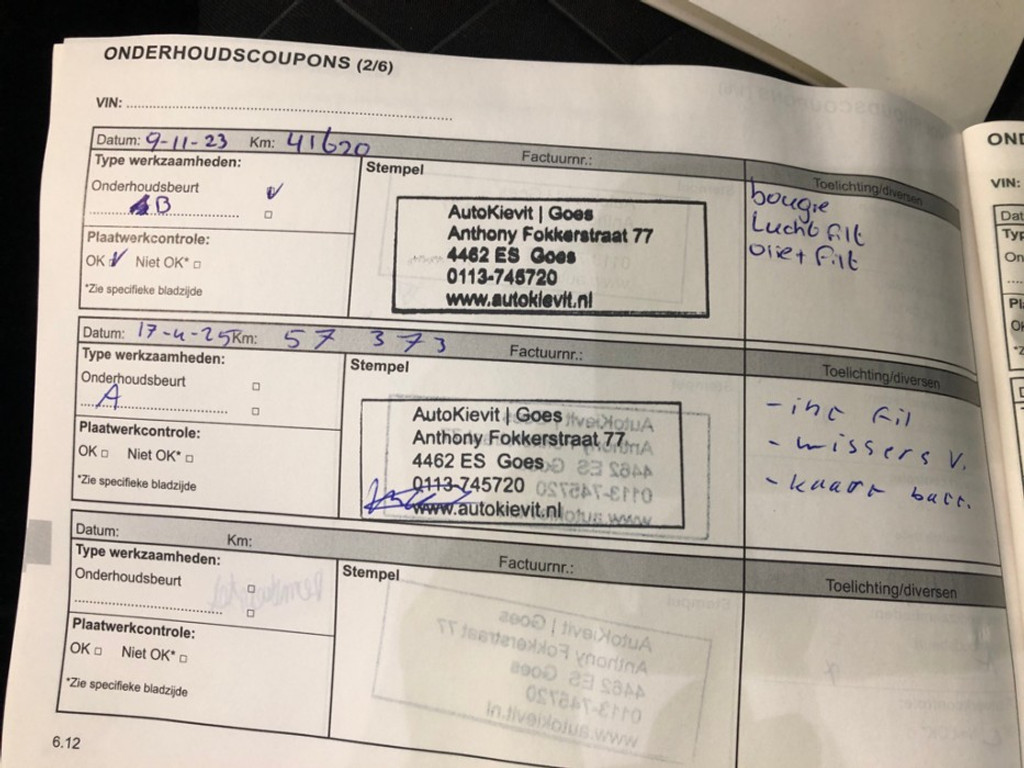 ONDERHOUDSCOUPONS (2/6)
VIN:
Datum: 9-11-23 Km: 41620 Factuurnr.:
Type werkzaamheden:
Stempel
Toelichting/diversen
Onderhoudsbeurt
B
Plaatwerkcontrole:
OK Niet OK*
*Zie specifieke bladzijde
AutoKievit | Goes
Anthony Fokkerstraat 77
4462 ES Goes
0113-745720
www.autokievit.nl
bougie
Lucht filt
olie + filt
Datum: 17-4-25 Km: 57 373 Factuurnr.:
Type werkzaamheden:
Stempel
Toelichting/diversen
Onderhoudsbeurt
A
Plaatwerkcontrole:
OK Niet OK*
*Zie specifieke bladzijde
AutoKievit | Goes
Anthony Fokkerstraat 77
4462 ES Goes
0113-745720
www.autokievit.nl
- int fil
- wissers v.
- kaart batt.
Datum: Km: Factuurnr.:
Type werkzaamheden:
Stempel
Toelichting/diversen
Onderhoudsbeurt
Plaatwerkcontrole:
OK Niet OK*
*Zie specifieke bladzijde
6.12
VIN: